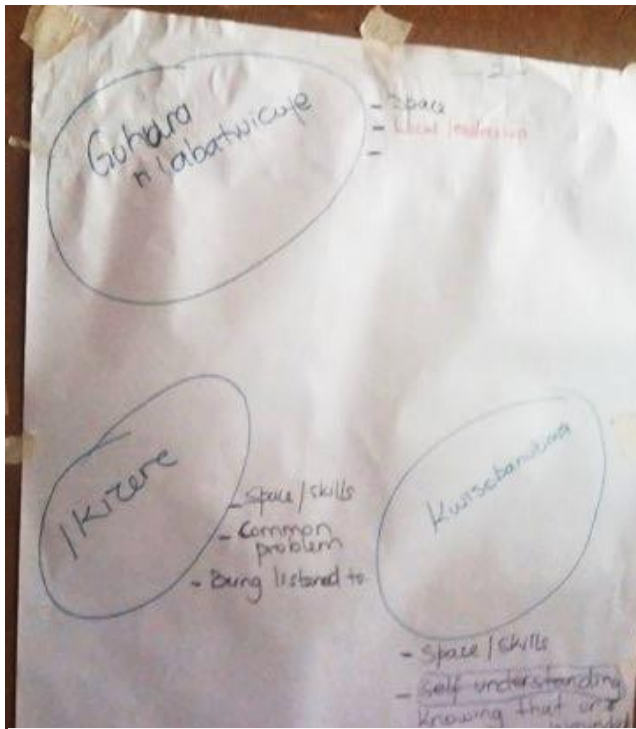 - 2 -
Guhara
n'labatwicuye
- Space
- Local leadership
-
Ikizere
- Space / skills
- Common
problem
- Being listened to
- Space / skills
- self understanding
Knowing that